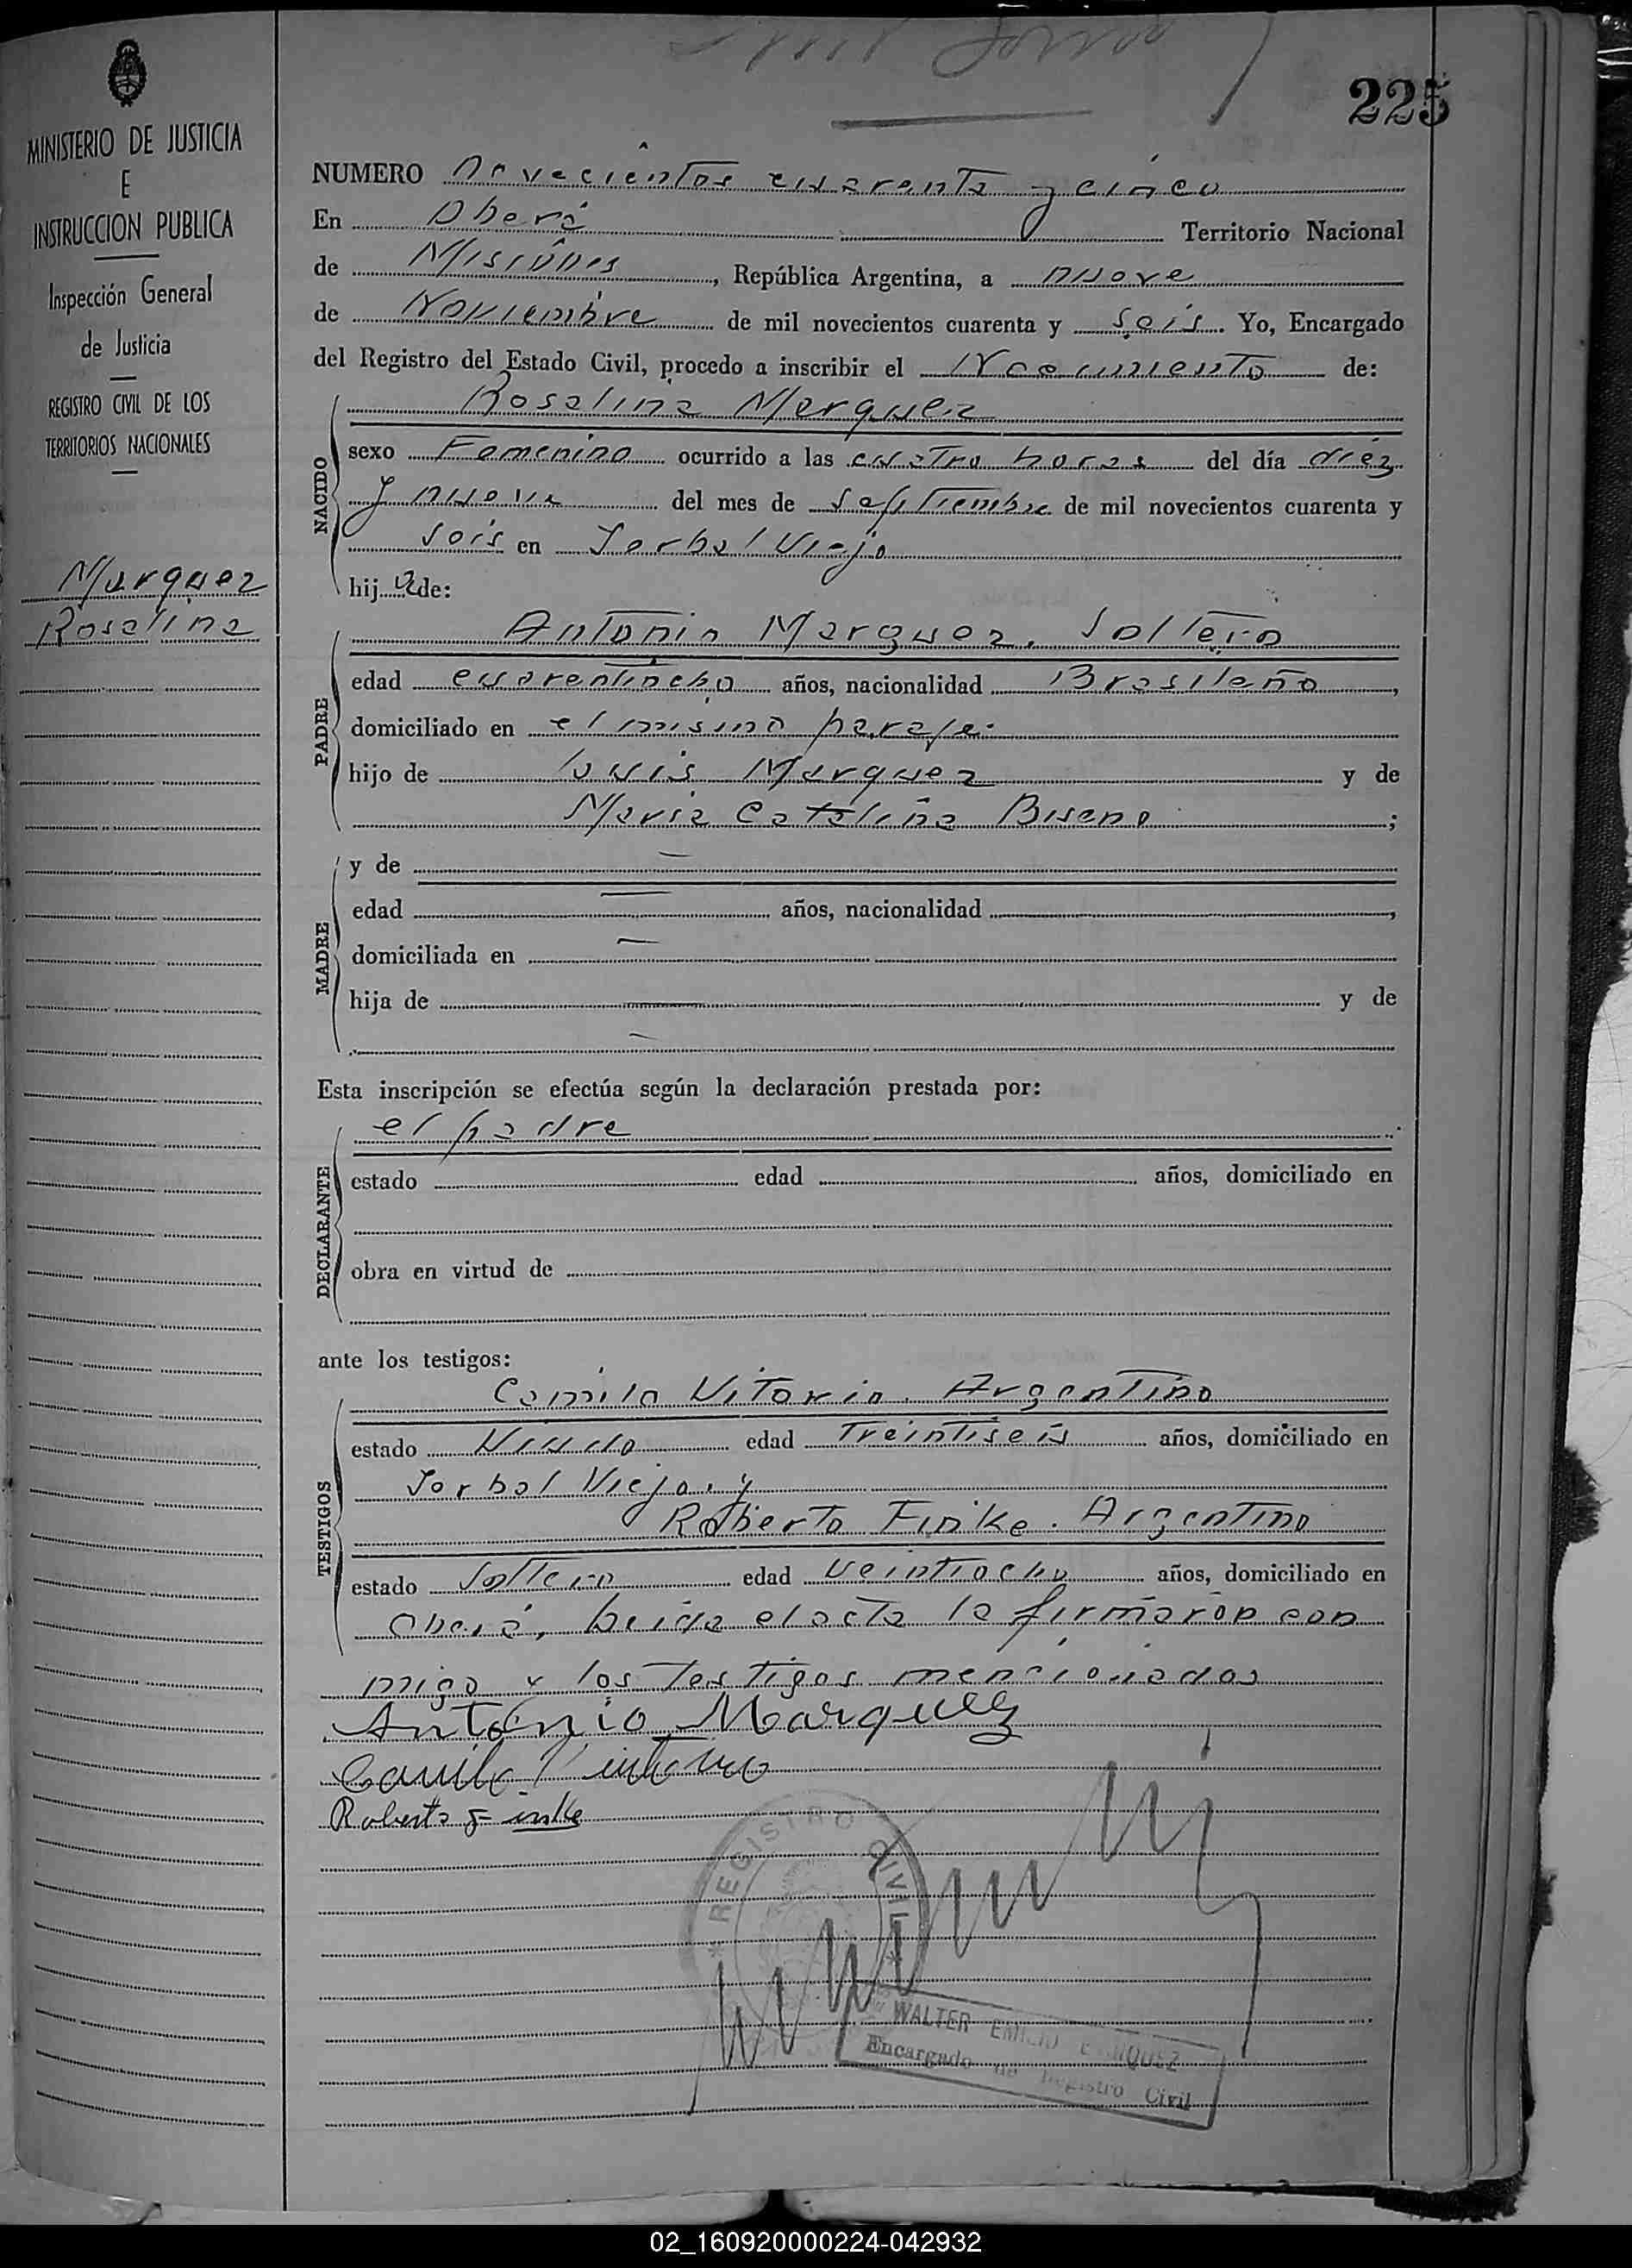 225
MINISTERIO DE JUSTICIA
E
INSTRUCCION PUBLICA
Inspección General
de Justicia
REGISTRO CIVIL DE LOS
TERRITORIOS NACIONALES
Marquez
Rosalina
NUMERO novecientos cuarenta y cinco
En Oberá Territorio Nacional
de Misiones, República Argentina, a nueve
de Noviembre de mil novecientos cuarenta y seis. Yo, Encargado
del Registro del Estado Civil, procedo a inscribir el Nacimiento de:
NACIDO
Rosalina Marquez
sexo Femenino ocurrido a las cuatro horas del día diez
y nueve del mes de Septiembre de mil novecientos cuarenta y
seis en Yerbal Viejo
hija de:
PADRE
Antonio Marquez. Soltero
edad cuarentiocho años, nacionalidad Brasileño,
domiciliado en el mismo paraje
hijo de Luis Marquez y de
Maria Catalina Bueno;
MADRE
y de —
edad — años, nacionalidad ,
domiciliada en —
hija de — y de
—
Esta inscripción se efectúa según la declaración prestada por:
DECLARANTE
el padre
estado edad años, domiciliado en
obra en virtud de
ante los testigos:
TESTIGOS
Camilo Vitorio. Argentino
estado Viudo edad Treintiseis años, domiciliado en
Yerbal Viejo. y
Roberto Finke. Argentino
estado Soltero edad Veintiocho años, domiciliado en
Oberá. Leida el acta la firmaron con
migo y los testigos mencionados
Antonio Marquez
Camilo
Roberto Finke
* REGISTRO CIVIL *
WALTER EMILIO
Encargado de Registro Civil
02_160920000224-042932